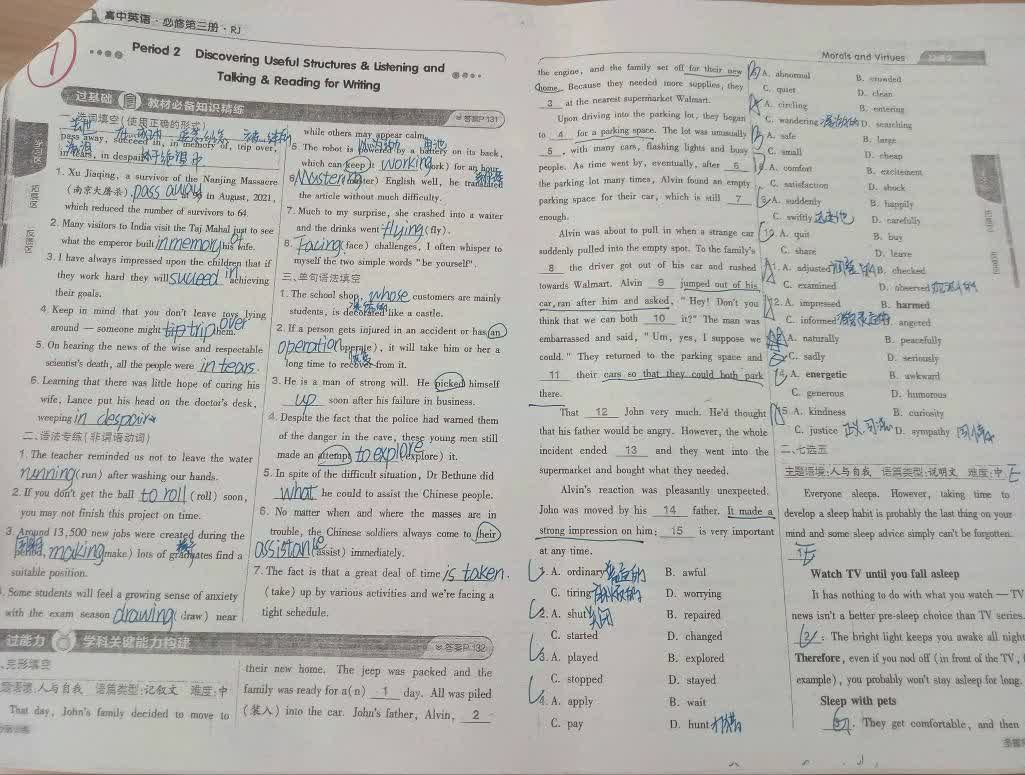 7
高中英语·必修第三册·RJ
Period 2 Discovering Useful Structures & Listening and
Talking & Reading for Writing
过基础 教材必备知识精练
答案P.131
一、选词填空(使用正确的形式)
pass away, succeed in, in memory of, trip over,
in tears, in despair
1. Xu Jiaqing, a survivor of the Nanjing Massacre
(南京大屠杀), pass away at 96 in August, 2021,
which reduced the number of survivors to 64.
2. Many visitors to India visit the Taj Mahal just to see
what the emperor built in memory of his wife.
3. I have always impressed upon the children that if
they work hard they will succeed in achieving
their goals.
4. Keep in mind that you don't leave toys lying
around — someone might trip over them.
5. On hearing the news of the wise and respectable
scientist's death, all the people were in tears.
6. Learning that there was little hope of curing his
wife, Lance put his head on the doctor's desk,
weeping in despair.
二、语法专练(非谓语动词)
1. The teacher reminded us not to leave the water
running (run) after washing our hands.
2. If you don't get the ball to roll (roll) soon,
you may not finish this project on time.
3. Around 13,500 new jobs were created during the
period, making (make) lots of graduates find a
suitable position.
4. Some students will feel a growing sense of anxiety
with the exam season drawing (draw) near
while others may appear calm.
5. The robot is powered by a battery on its back,
which can keep it working (work) for an hour.
6. (master) English well, he translated
the article without much difficulty.
7. Much to my surprise, she crashed into a waiter
and the drinks went flying (fly).
8. Facing (face) challenges, I often whisper to
myself the two simple words "be yourself".
三、单句语法填空
1. The school shop, whose customers are mainly
students, is decorated like a castle.
2. If a person gets injured in an accident or has an
operation (operate), it will take him or her a
long time to recover from it.
3. He is a man of strong will. He picked himself
up soon after his failure in business.
4. Despite the fact that the police had warned them
of the danger in the cave, these young men still
made an attempt to explore (explore) it.
5. In spite of the difficult situation, Dr Bethune did
what he could to assist the Chinese people.
6. No matter when and where the masses are in
trouble, the Chinese soldiers always come to their
assistance (assist) immediately.
7. The fact is that a great deal of time is taken.
(take) up by various activities and we're facing a
tight schedule.
过能力 学科关键能力构建
答案P.132
一、完形填空
主题语境:人与自我 语篇类型:记叙文 难度:中
That day, John's family decided to move to
their new home. The jeep was packed and the
family was ready for a(n) 1 day. All was piled
(装入) into the car. John's father, Alvin, 2
Morals and Virtues
the engine, and the family set off for their new
home. Because they needed more supplies, they
3 at the nearest supermarket Walmart.
Upon driving into the parking lot, they began
to 4 for a parking space. The lot was unusually
5, with many cars, flashing lights and busy
people. As time went by, eventually, after 6
the parking lot many times, Alvin found an empty
parking space for their car, which is still 7
enough.
Alvin was about to pull in when a strange car
suddenly pulled into the empty spot. To the family's
8 the driver got out of his car and rushed
towards Walmart. Alvin 9 jumped out of his
car, ran after him and asked, "Hey! Don't you
think that we can both 10 it?" The man was
embarrassed and said, "Um, yes, I suppose we
could." They returned to the parking space and
11 their cars so that they could both park
there.
That 12 John very much. He'd thought
that his father would be angry. However, the whole
incident ended 13 and they went into the
supermarket and bought what they needed.
Alvin's reaction was pleasantly unexpected.
John was moved by his 14 father. It made a
strong impression on him: 15 is very important
at any time.
1. A. ordinary B. awful
C. tiring D. worrying
2. A. shut 关闭 B. repaired
C. started D. changed
3. A. played B. explored
C. stopped D. stayed
4. A. apply B. wait
C. pay D. hunt 打猎
A. abnormal B. crowded
C. quiet D. clean
A. circling B. entering
C. wandering D. searching
A. safe B. large
C. small D. cheap
A. comfort B. excitement
C. satisfaction D. shock
A. suddenly B. happily
C. swiftly D. carefully
A. quit B. buy
C. share D. leave
11. A. adjusted B. checked
C. examined D. observed
12. A. impressed B. harmed
C. informed D. angered
A. naturally B. peacefully
C. sadly D. seriously
14. A. energetic B. awkward
C. generous D. humorous
15. A. kindness B. curiosity
C. justice D. sympathy
二、七选五
主题语境:人与自我 语篇类型:说明文 难度:中
Everyone sleeps. However, taking time to
develop a sleep habit is probably the last thing on your
mind and some sleep advice simply can't be forgotten.
1 E
Watch TV until you fall asleep
It has nothing to do with what you watch — TV
news isn't a better pre-sleep choice than TV series.
2. The bright light keeps you awake all night.
Therefore, even if you nod off (in front of the TV,
example), you probably won't stay asleep for long.
Sleep with pets
3. They get comfortable, and then